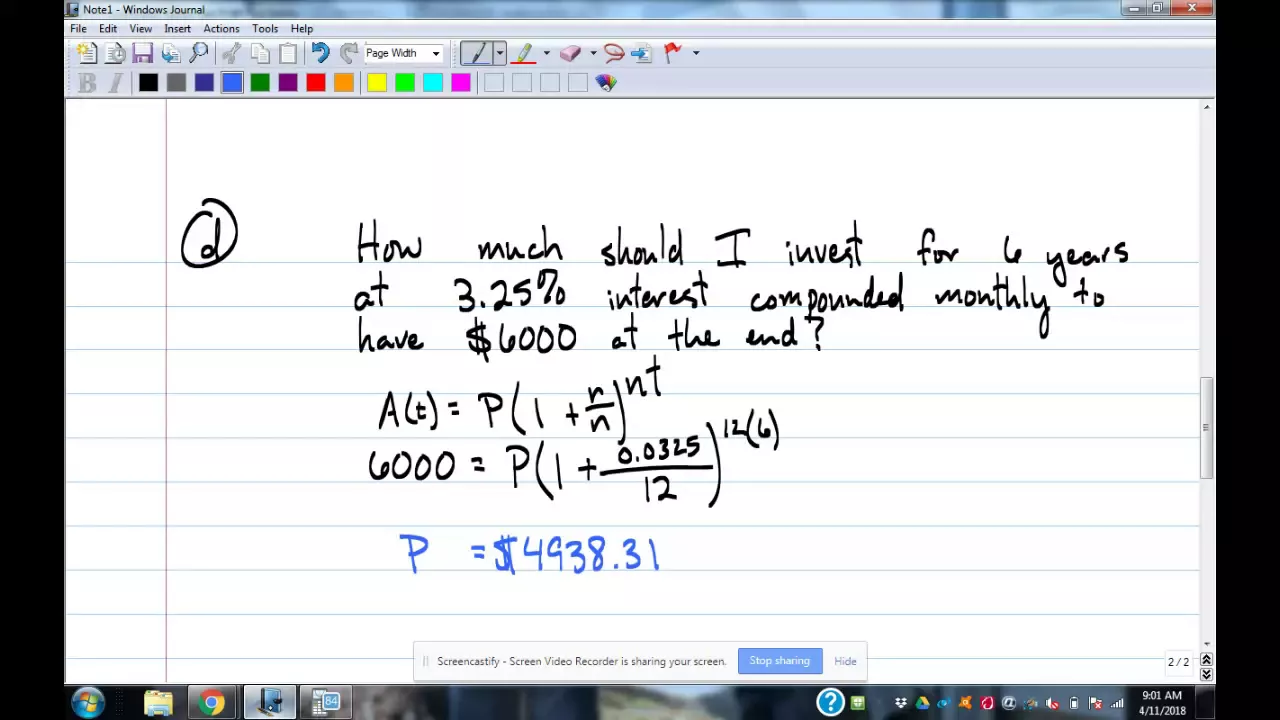 Note1 - Windows Journal
File Edit View Insert Actions Tools Help
Page Width
B I
d
How much should I invest for 6 years
at 3.25% interest compounded monthly to
have $6000 at the end?
A(t) = P(1 + r/n)^nt
6000 = P(1 + 0.0325/12)^12(6)
P = $4938.31
Screencastify - Screen Video Recorder is sharing your screen. Stop sharing Hide
2 / 2
84
9:01 AM
4/11/2018